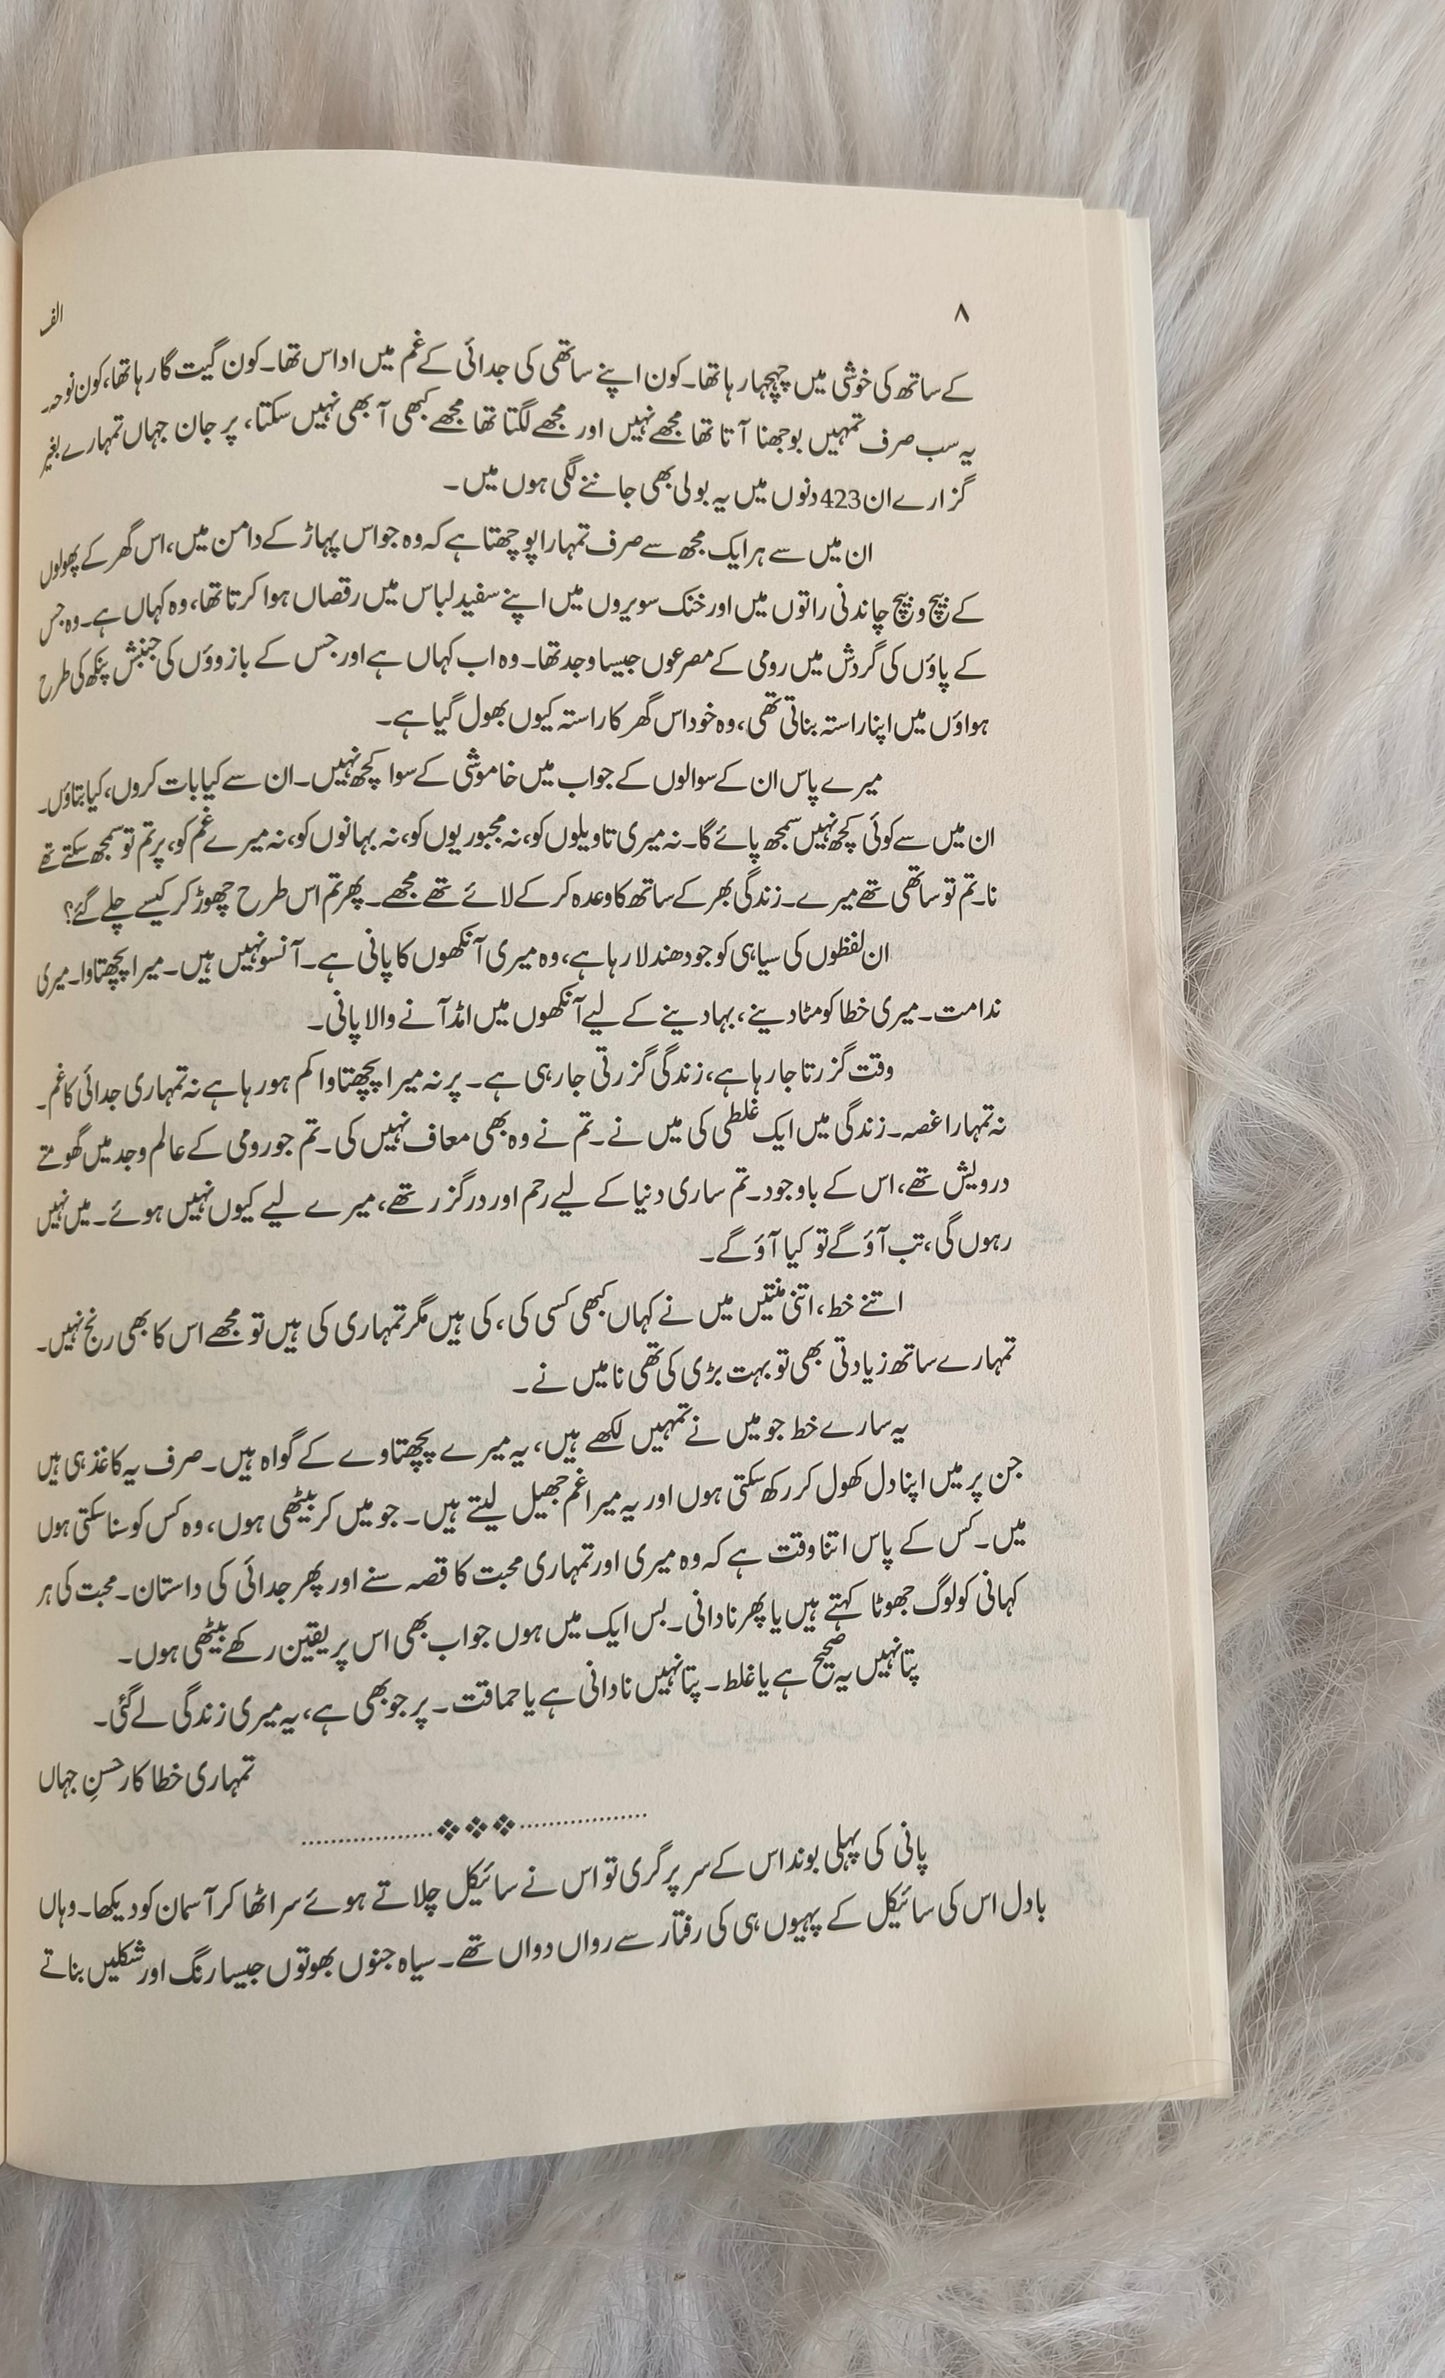 ۸
الف
کے ساتھ کی خوشی میں چہچہا رہا تھا۔ کون اپنے ساتھی کی جدائی کے غم میں اداس تھا۔ کون گیت گا رہا تھا، کون نوحہ۔
یہ سب صرف تمہیں بوجھنا آتا تھا مجھے نہیں اور مجھے لگتا تھا مجھے کبھی آ بھی نہیں سکتا، پر جان جہاں تمہارے بغیر
گزارے ان 423 دنوں میں یہ بولی بھی جاننے لگی ہوں میں۔
ان میں سے ہر ایک مجھ سے صرف تمہارا پوچھتا ہے کہ وہ جو اس پہاڑ کے دامن میں، اس گھر کے پھولوں
کے بیچ و بیچ چاندنی راتوں میں اور خنک سویروں میں اپنے سفید لباس میں رقصاں ہوا کرتا تھا، وہ کہاں ہے۔ وہ جس
کے پاؤں کی گردش میں رومی کے مصرعوں جیسا وجد تھا۔ وہ اب کہاں ہے اور جس کے بازوؤں کی جنبش پنکھ کی طرح
ہواؤں میں اپنا راستہ بناتی تھی، وہ خود اس گھر کا راستہ کیوں بھول گیا ہے۔
میرے پاس ان کے سوالوں کے جواب میں خاموشی کے سوا کچھ نہیں۔ ان سے کیا بات کروں، کیا بتاؤں۔
ان میں سے کوئی کچھ نہیں سمجھ پائے گا۔ نہ میری تاویلوں کو، نہ مجبوریوں کو، نہ بہانوں کو، نہ میرے غم کو، پر تم تو سمجھ سکتے تھے
نا۔ تم تو ساتھی تھے میرے۔ زندگی بھر کے ساتھ کا وعدہ کر کے لائے تھے مجھے۔ پھر تم اس طرح چھوڑ کر کیسے چلے گئے؟
ان لفظوں کی سیاہی کو جو دھندلا رہا ہے، وہ میری آنکھوں کا پانی ہے۔ آنسو نہیں ہیں۔ میرا پچھتاوا۔ میری
ندامت۔ میری خطا کو مٹا دینے، بہا دینے کے لیے آنکھوں میں امڈ آنے والا پانی۔
وقت گزرتا جا رہا ہے، زندگی گزرتی جا رہی ہے۔ پر نہ میرا پچھتاوا کم ہو رہا ہے نہ تمہاری جدائی کا غم۔
نہ تمہارا غصہ۔ زندگی میں ایک غلطی کی میں نے۔ تم نے وہ بھی معاف نہیں کی۔ تم جو رومی کے عالم وجد میں گھومتے
درویش تھے، اس کے باوجود۔ تم ساری دنیا کے لیے رحم اور درگزر تھے، میرے لیے کیوں نہیں ہوئے۔ میں نہیں
رہوں گی، تب آؤ گے تو کیا آؤ گے۔
اتنے خط، اتنی منتیں میں نے کہاں کبھی کسی کی، کی ہیں مگر تمہاری کی ہیں تو مجھے اس کا بھی رنج نہیں۔
تمہارے ساتھ زیادتی بھی تو بہت بڑی کی تھی نا میں نے۔
یہ سارے خط جو میں نے تمہیں لکھے ہیں، یہ میرے پچھتاوے کے گواہ ہیں۔ صرف یہ کاغذ ہی ہیں
جن پر میں اپنا دل کھول کر رکھ سکتی ہوں اور یہ میرا غم جھیل لیتے ہیں۔ جو میں کر بیٹھی ہوں، وہ کس کو سنا سکتی ہوں
میں۔ کس کے پاس اتنا وقت ہے کہ وہ میری اور تمہاری محبت کا قصہ سنے اور پھر جدائی کی داستان۔ محبت کی ہر
کہانی کو لوگ جھوٹا کہتے ہیں یا پھر نادانی۔ بس ایک میں ہوں جو اب بھی اس پر یقین رکھے بیٹھی ہوں۔
پتا نہیں یہ صحیح ہے یا غلط۔ پتا نہیں نادانی ہے یا حماقت۔ پر جو بھی ہے، یہ میری زندگی لے گئی۔
تمہاری خطا کار حسنِ جہاں
پانی کی پہلی بوند اس کے سر پر گری تو اس نے سائیکل چلاتے ہوئے سر اٹھا کر آسمان کو دیکھا۔ وہاں
بادل اس کی سائیکل کے پہیوں ہی کی رفتار سے رواں دواں تھے۔ سیاہ جنوں بھوتوں جیسا رنگ اور شکلیں بناتے